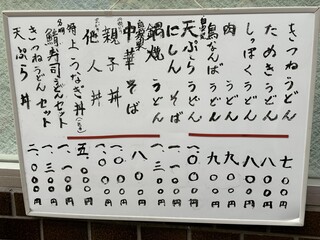 きつねうどん 七〇〇円
たぬきうどん 八〇〇円
しっぽくうどん 八〇〇円
肉うどん 九〇〇円
鶏なんばうどん 九〇〇円
天ぷらうどん 一、〇〇〇円
にしんそば 一、一〇〇円
鍋焼うどん 一、三〇〇円
中華そば 八〇〇円
親子丼 一、〇〇〇円
他人丼 一、〇〇〇円
特上うなぎ丼 五、〇〇〇円
鯖寿司うどんセット 一、〇〇円
きつねうどんセット 一、〇〇〇円
天ぷら丼 二、〇〇〇円